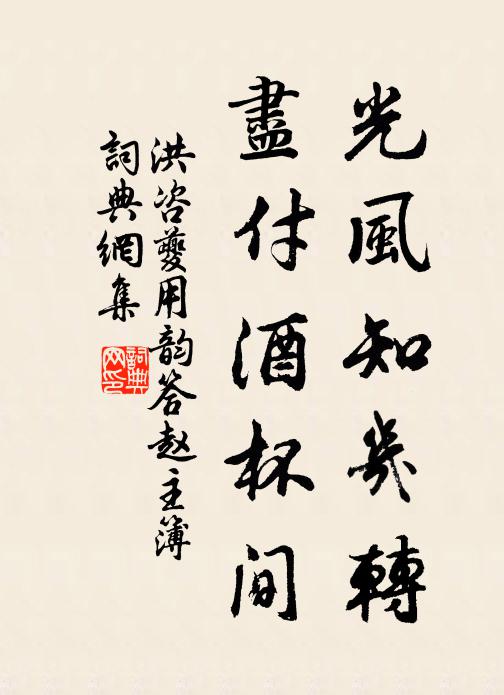 光風知幾轉
盡付酒杯間
洪咨夔用韵答赵主簿
詞典網集
詞典网印